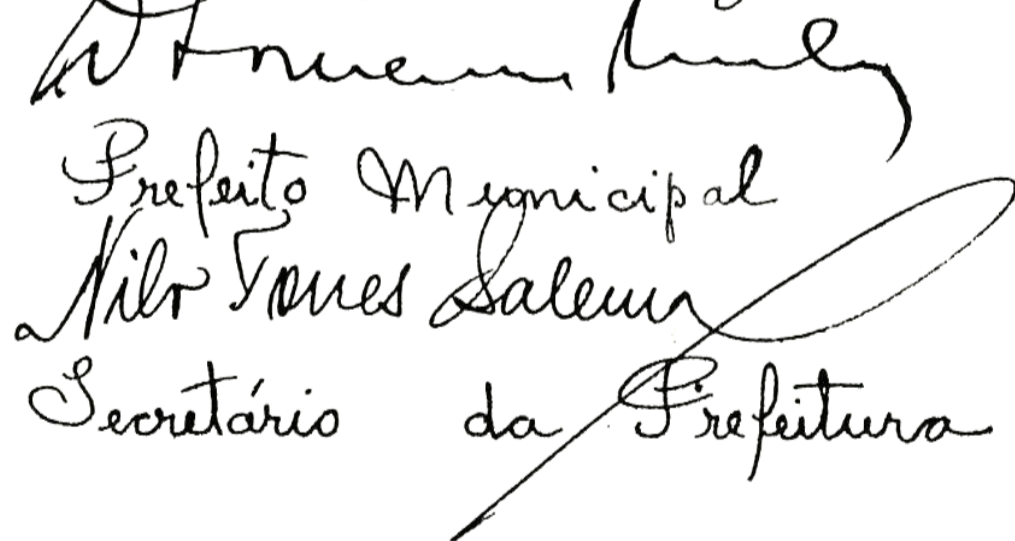 Prefeito Municipal
Nilo Torres Salem
Secretário da Prefeitura